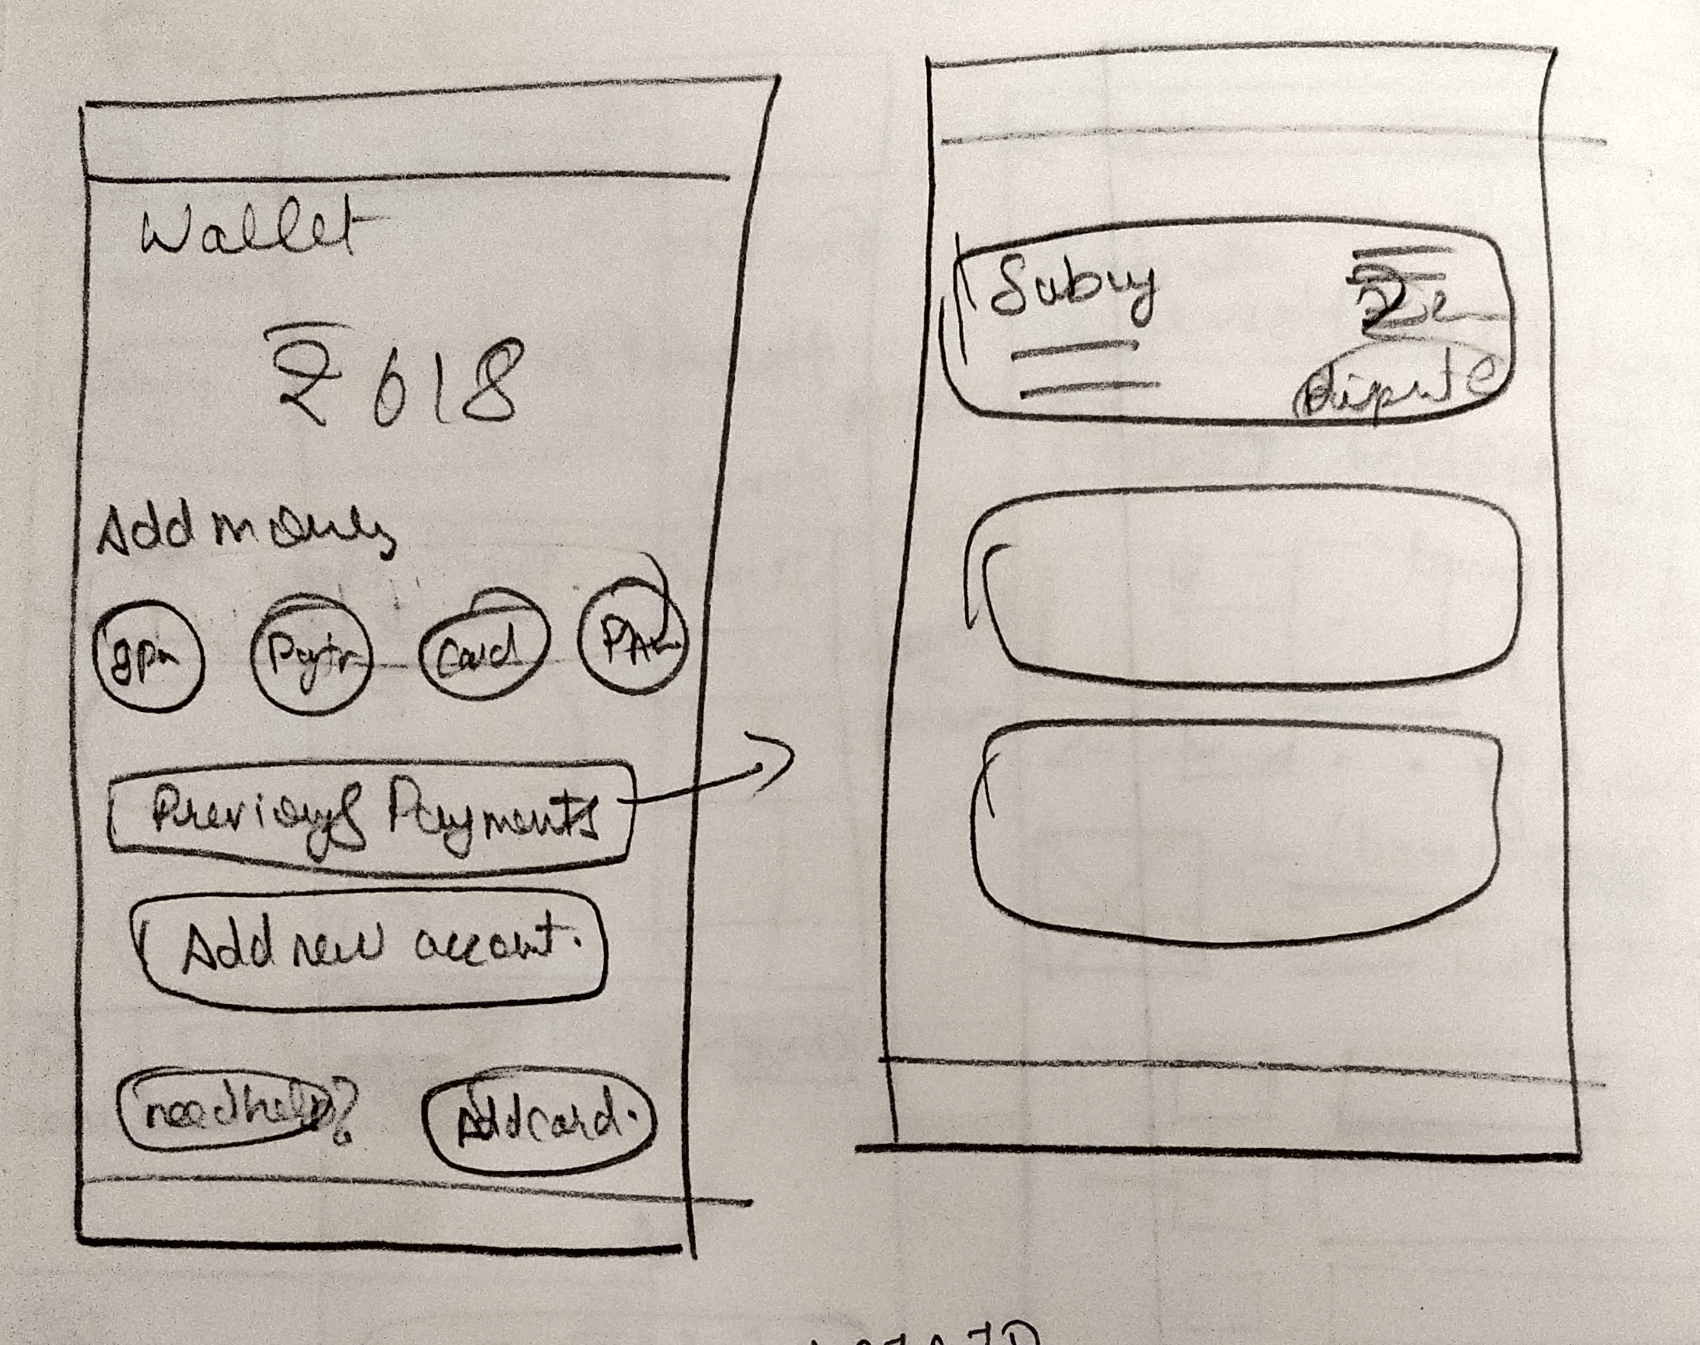 Wallet
₹ 618
Add money
gpa
Paytm
Card
Previous Payments
Add new account.
need help?
Add card.
Dispute